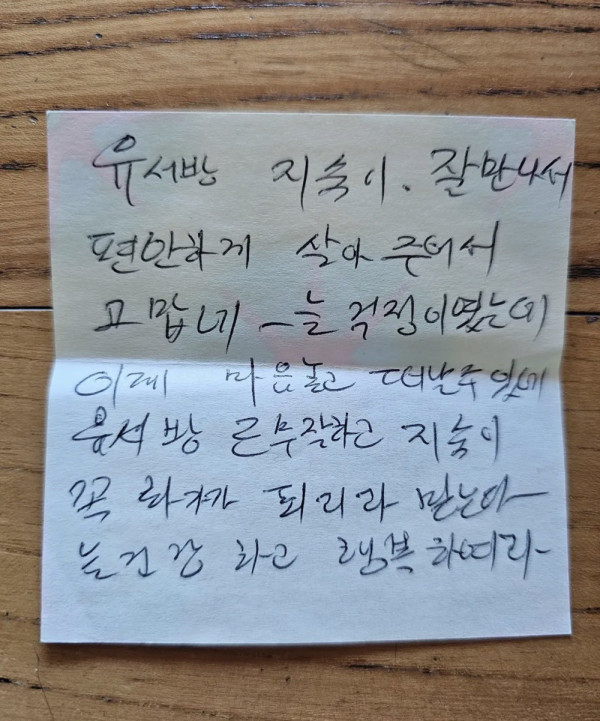 유서방 지숙이. 잘만나서
편안하게 살아 주어서
고맙네 늘 걱정이였는데
이제 마음놓고 떠날수있네
유서방 근무잘하고 지숙이
꼭 화가가 되리라 믿는다
늘건강 하고 행복하여라